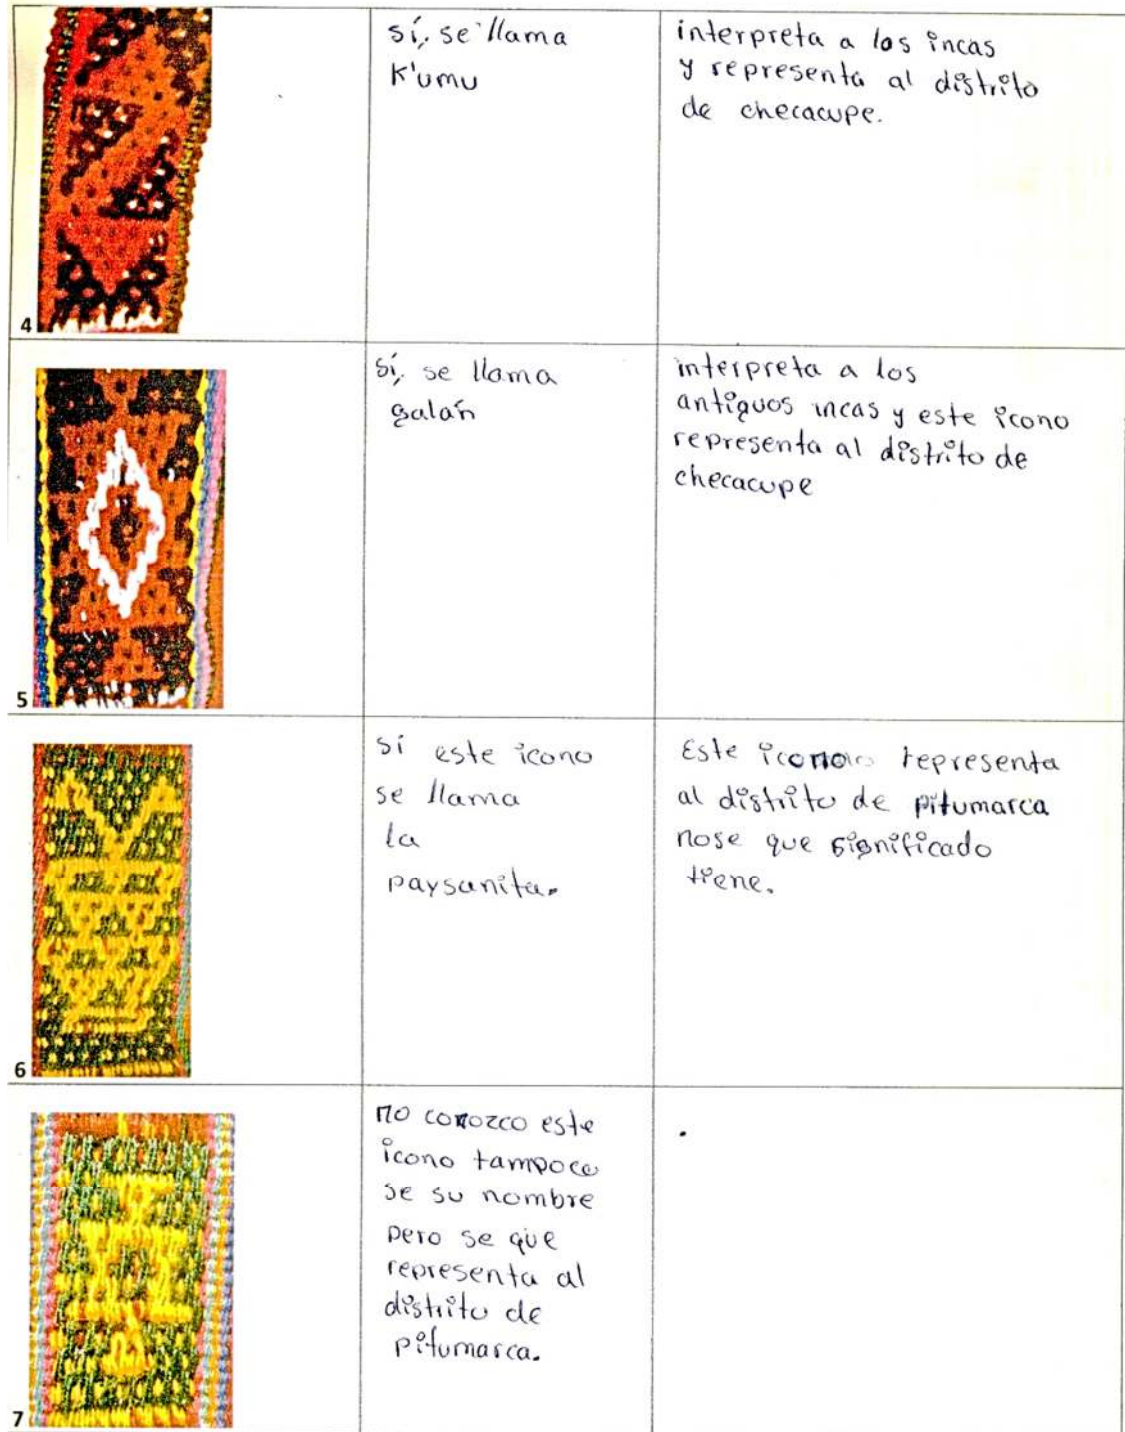 sí, se llama
K'umu
interpreta a los incas
y representa al distrito
de checacupe.
4
sí, se llama
galán
interpreta a los
antiguos incas y este icono
representa al distrito de
checacupe
5
sí este icono
se llama
la
paysanita.
Este icono representa
al distrito de pitumarca
nose que significado
tiene.
6
no conozco este
icono tampoco
se su nombre
pero se que
representa al
distrito de
pitumarca.
7